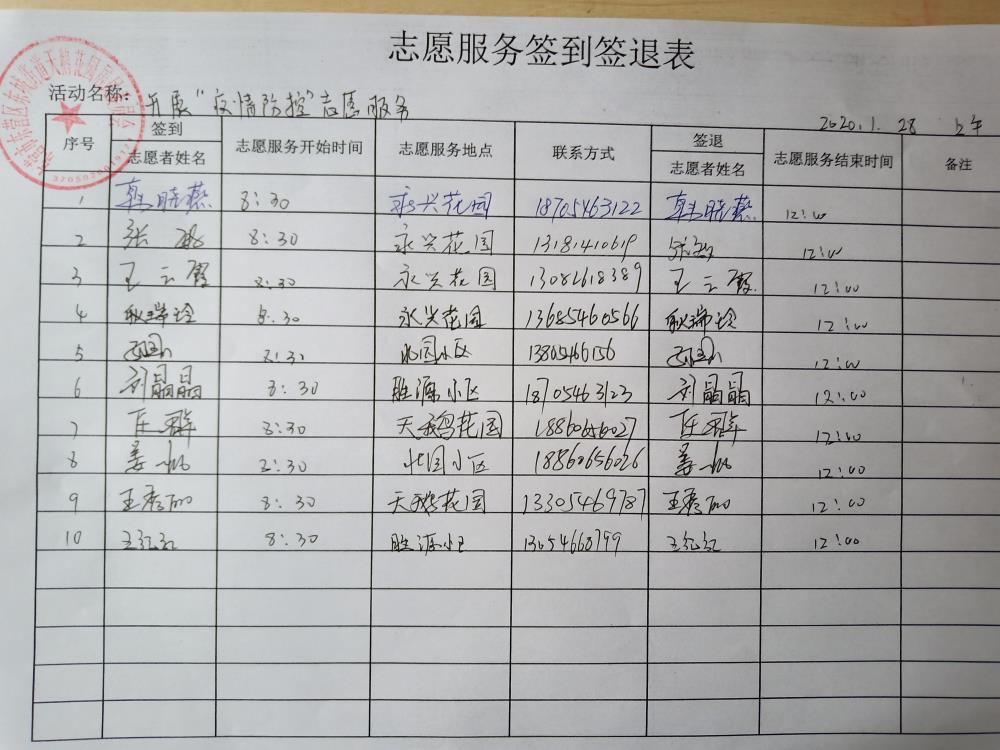 志愿服务签到签退表
活动名称: 开展"疫情防控"志愿服务
2020.1.28 上午
序号 签到 志愿者姓名 志愿服务开始时间 志愿服务地点 联系方式 签退 志愿者姓名 志愿服务结束时间 备注
1 韩晓燕 8:30 永兴花园 18705463122 韩晓燕 12:00
2 张敏 8:30 永兴花园 13181410619 张敏 12:00
3 王云霞 8:30 永兴花园 13082618389 王云霞 12:00
4 耿瑞玲 8:30 永兴花园 13685466566 耿瑞玲 12:00
5 8:30 北园小区 13805466156 12:00
6 刘晶晶 8:30 胜源小区 18705463123 刘晶晶 12:00
7 任群 8:30 天鹅花园 18860656027 任群 12:00
8 姜帆 8:30 北园小区 18860656026 姜帆 12:00
9 王秀丽 8:30 天鹅花园 13305469787 王秀丽 12:00
10 王红红 8:30 胜源小区 13054668799 王红红 12:00